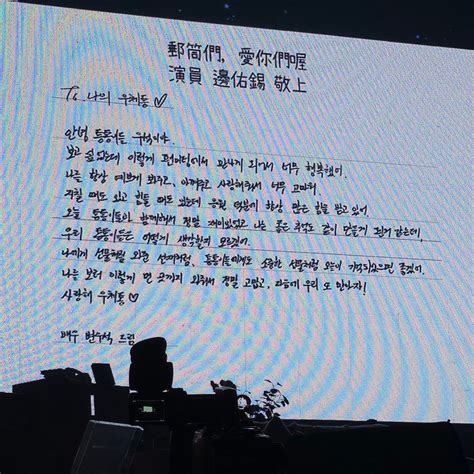 郵筒們, 愛你們喔
演員 邊佑錫 敬上
To. 나의 우체통♡
안녕 통통이들 우석이야.
보고 싶었는데 이렇게 팬미팅에서 만나게 되어서 너무 행복했어.
나를 항상 예쁘게 봐주고, 아껴주고 사랑해줘서 너무 고마워.
지칠 때도 있고 힘들 때도 있는데 응원 덕분에 항상 많은 힘을 받고 있어.
오늘 통통이들이 함께해서 정말 재미있었고 나는 좋은 추억도 같이 만들게 된거 같은데,
우리 통통이들은 어떻게 생각할지 모르겠어.
나에게 선물처럼 와준 선재처럼, 통통이들에게도 소중한 선물처럼 오늘이 기억되었으면 좋겠어.
나를 보러 이렇게 먼 곳까지 와줘서 정말 고맙고, 다음에 우리 또 만나자!
사랑해 우체통♡
배우 변우석 드림